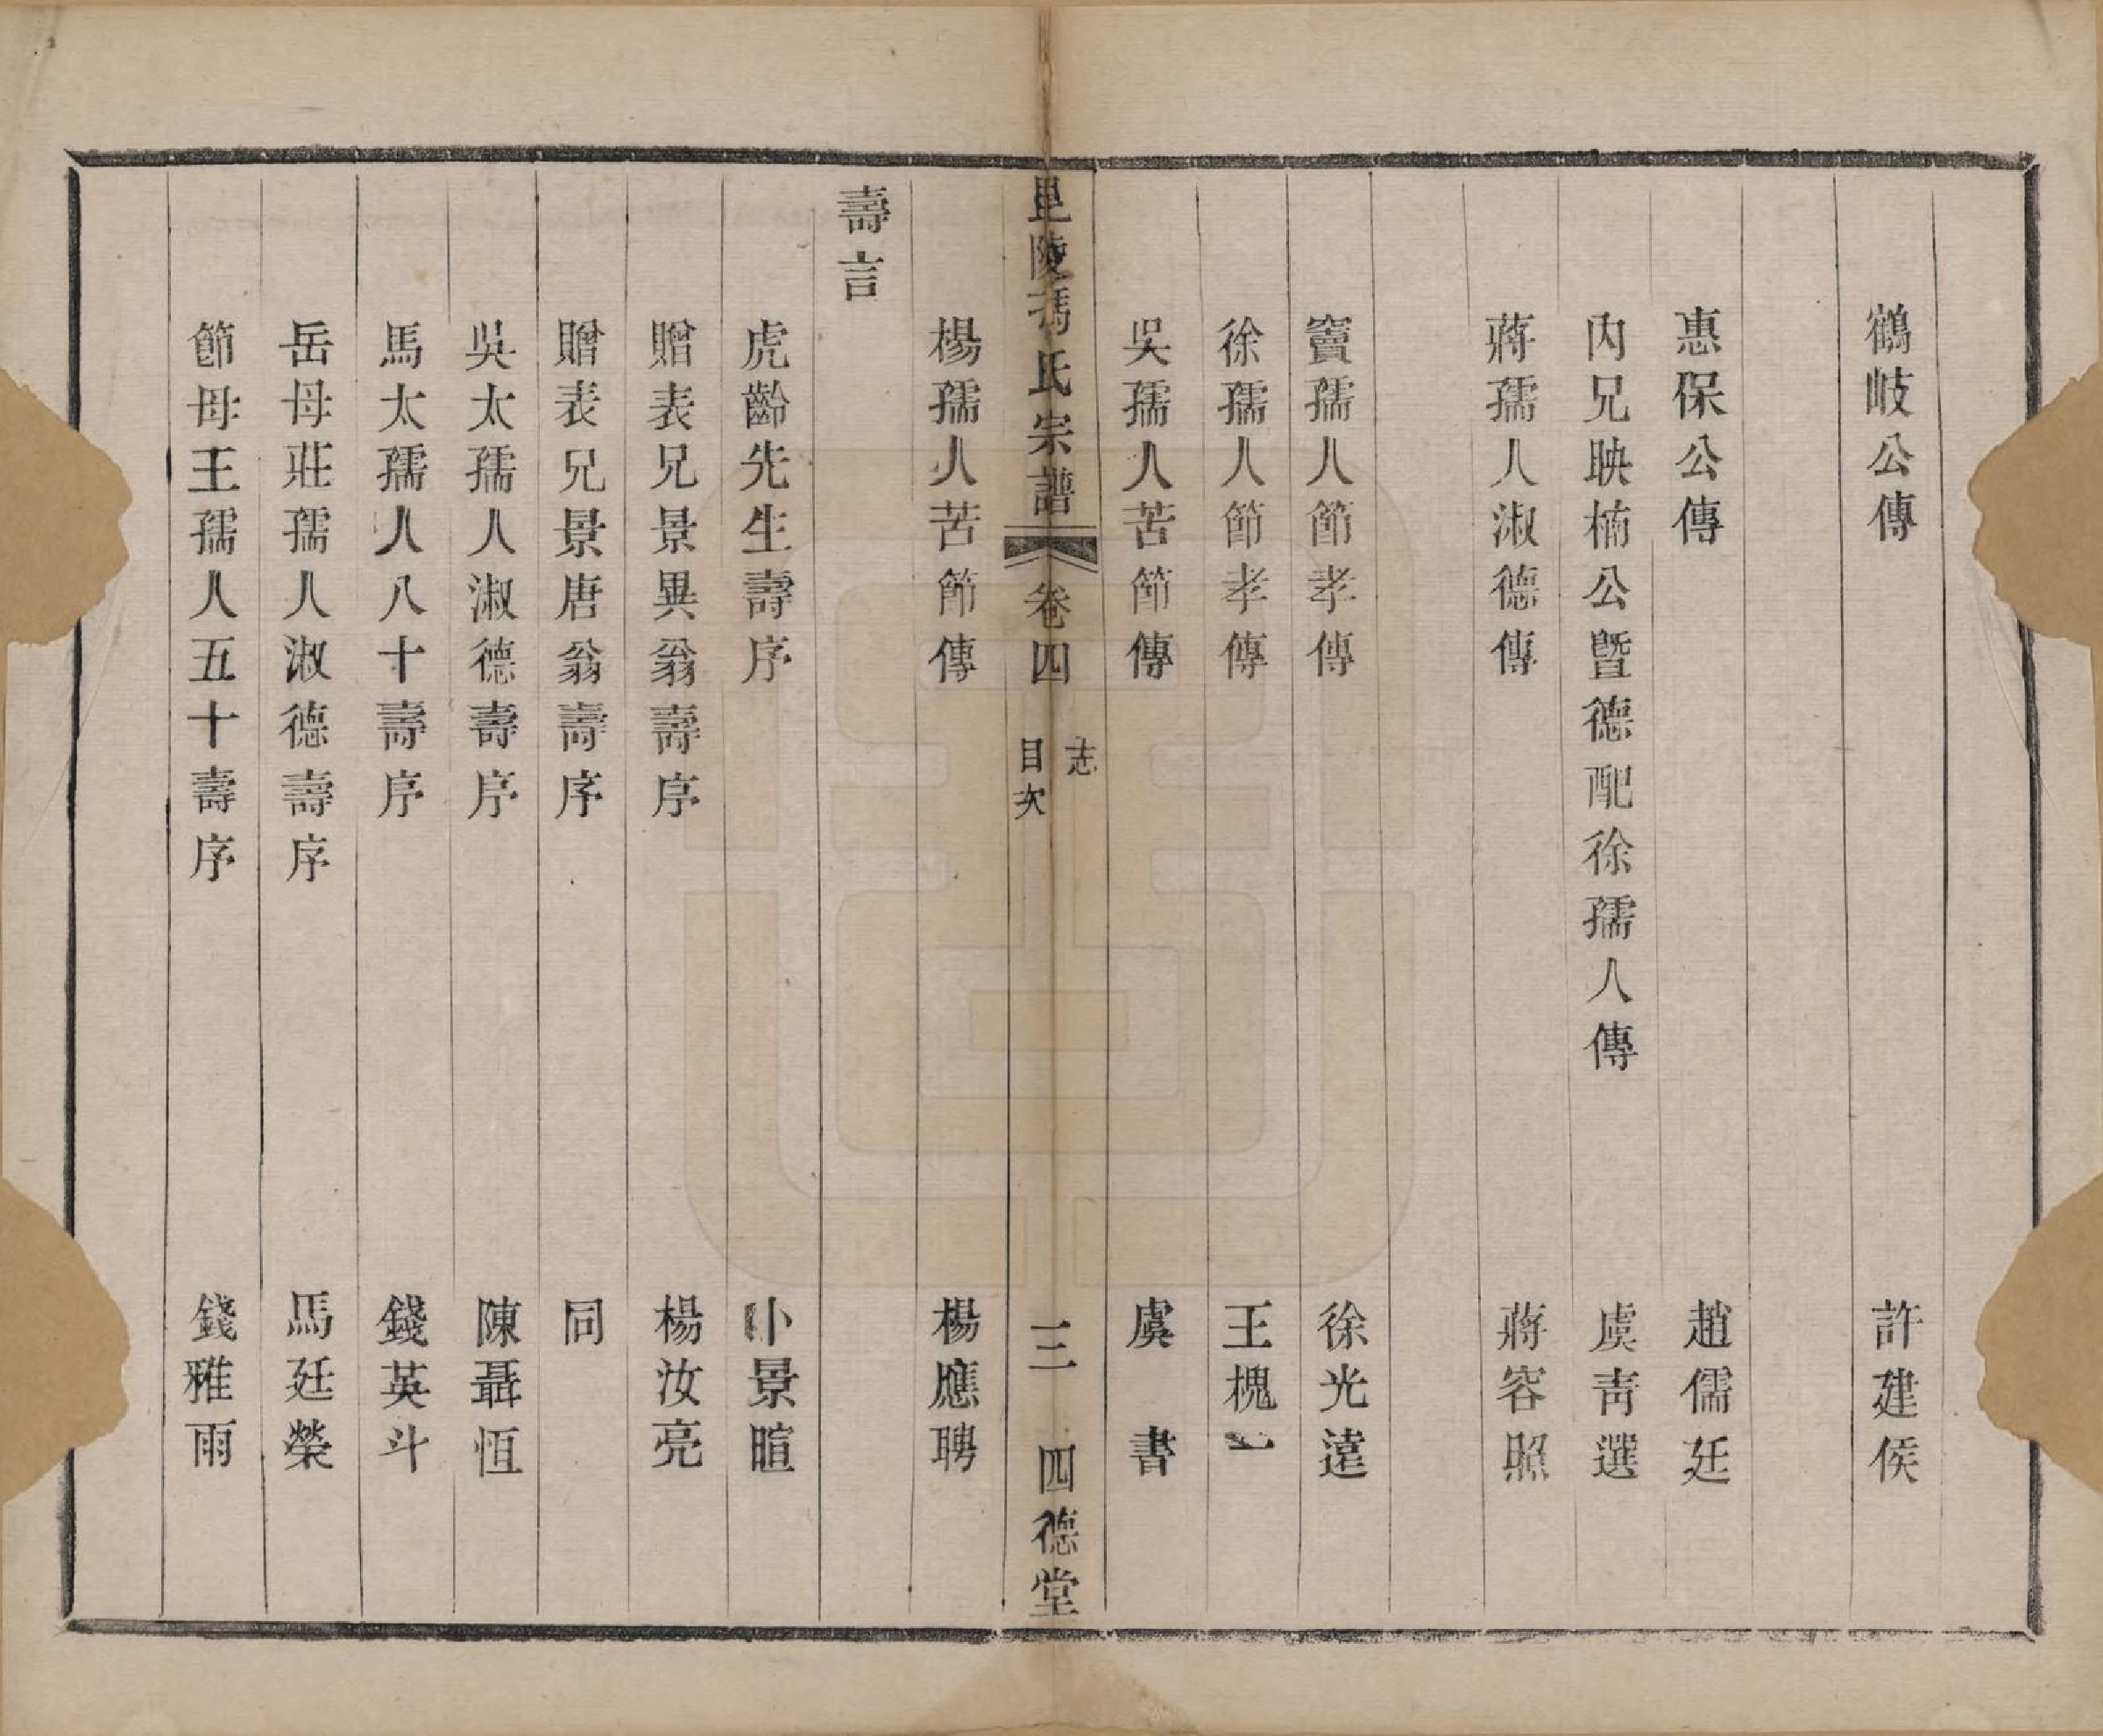 鶴岐公傳 許建侯
惠保公傳 趙儒廷
內兄映楠公暨德配徐孺人傳 虞青選
蔣孺人淑德傳 蔣容照
竇孺人節孝傳 徐光遠
徐孺人節孝傳 王槐
吳孺人苦節傳 虞書
毘陵馮氏宗譜 卷四 志 目次 三 四德堂
楊孺人苦節傳 楊應聘
壽言
虎齡先生壽序 卜景暄
贈表兄景異翁壽序 楊汝亮
贈表兄景唐翁壽序 同
吳太孺人淑德壽序 陳聶恒
馬太孺人八十壽序 錢英斗
岳母莊孺人淑德壽序 馬廷榮
節母王孺人五十壽序 錢雅雨